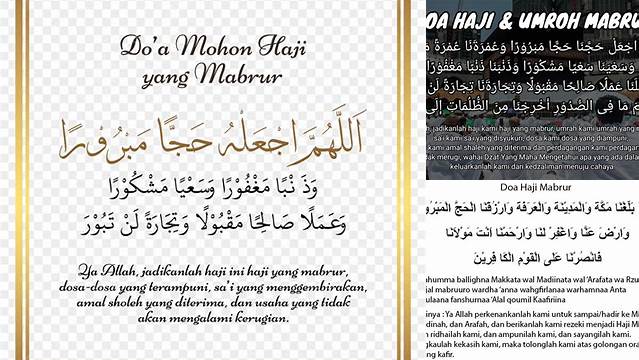 Do'a Mohon Haji
yang Mabrur
اَللّٰهُمَّ اجْعَلْهُ حَجًّا مَبْرُوْرًا
وَذَ نْبًا مَغْفُوْرًا وَسَعْيًا مَشْكُوْرًا
وَعَمَلًا صَالِحًا مَقْبُوْلًا وَتِجَارَةً لَنْ تَبُوْرَ
Ya Allah, jadikanlah haji ini haji yang mabrur,
dosa-dosa yang terampuni, sa'i yang menggembirakan,
amal sholeh yang diterima, dan usaha yang tidak
akan mengalami kerugian.
DOA HAJI & UMROH MABRU
اجْعَلْ حَجَّنَا حَجًّا مَبْرُوْرًا وَعُمْرَتَنَا عُمْرَةً
وَسَعْيَنَا سَعْيًا مَشْكُوْرًا وَذَنْبَنَا ذَنْبًا مَغْفُوْرًا
نَا عَمَلًا صَالِحًا مَقْبُوْلًا وَتِجَارَتَنَا تِجَارَةً لَنْ
مَ مَا فِى الصُّدُوْرِ أَخْرِجْنَا مِنَ الظُّلُمَاتِ إِلَى
jadikanlah haji kami haji yang mabrur, umrah kami umrah yang
sa'i kami sa'i yang disyukuri, dosa kami dosa yang diampuni
amal kami amal shaleh yang diterima dan perdagangan kami perdagangan
tidak merugi, wahai Dzat Yang Maha Mengetahui apa yang ada dala
keluarkanlah kami dari kedzaliman menuju cahaya
Doa Haji Mabrur
بَلِّغْنَا مَكَّةَ وَالْمَدِيْنَةَ وَالْعَرَفَةَ وَارْزُقْنَا الْحَجَّ الْمَبْرُوْ
وَارْضَ عَنَّا وَاغْفِرْ لَنَا وَارْحَمْنَا اَنْتَ مَوْلَانَا
فَانْصُرْنَا عَلَى الْقَوْمِ الْكَا فِرِيْنَ
ahumma ballighna Makkata wal Madiinata wal 'Arafata wa Rzu
jal mabruuro wardha 'anna wahgfirlanaa warhamnaa Anta
ulaana fanshurnaa 'Alal qoumil Kaafiriina
inya : Ya Allah perkenankanlah kami untuk sampai/hadir ke M
dinah, dan Arafah, dan berikanlah kami rezeki menjadi Haji M
n ridhailah kami, dan ampunilah kami, dan sayangilah kami.
gkaulah kekasih kami, maka tolonglah kami atas golongan ora
ng kafir.